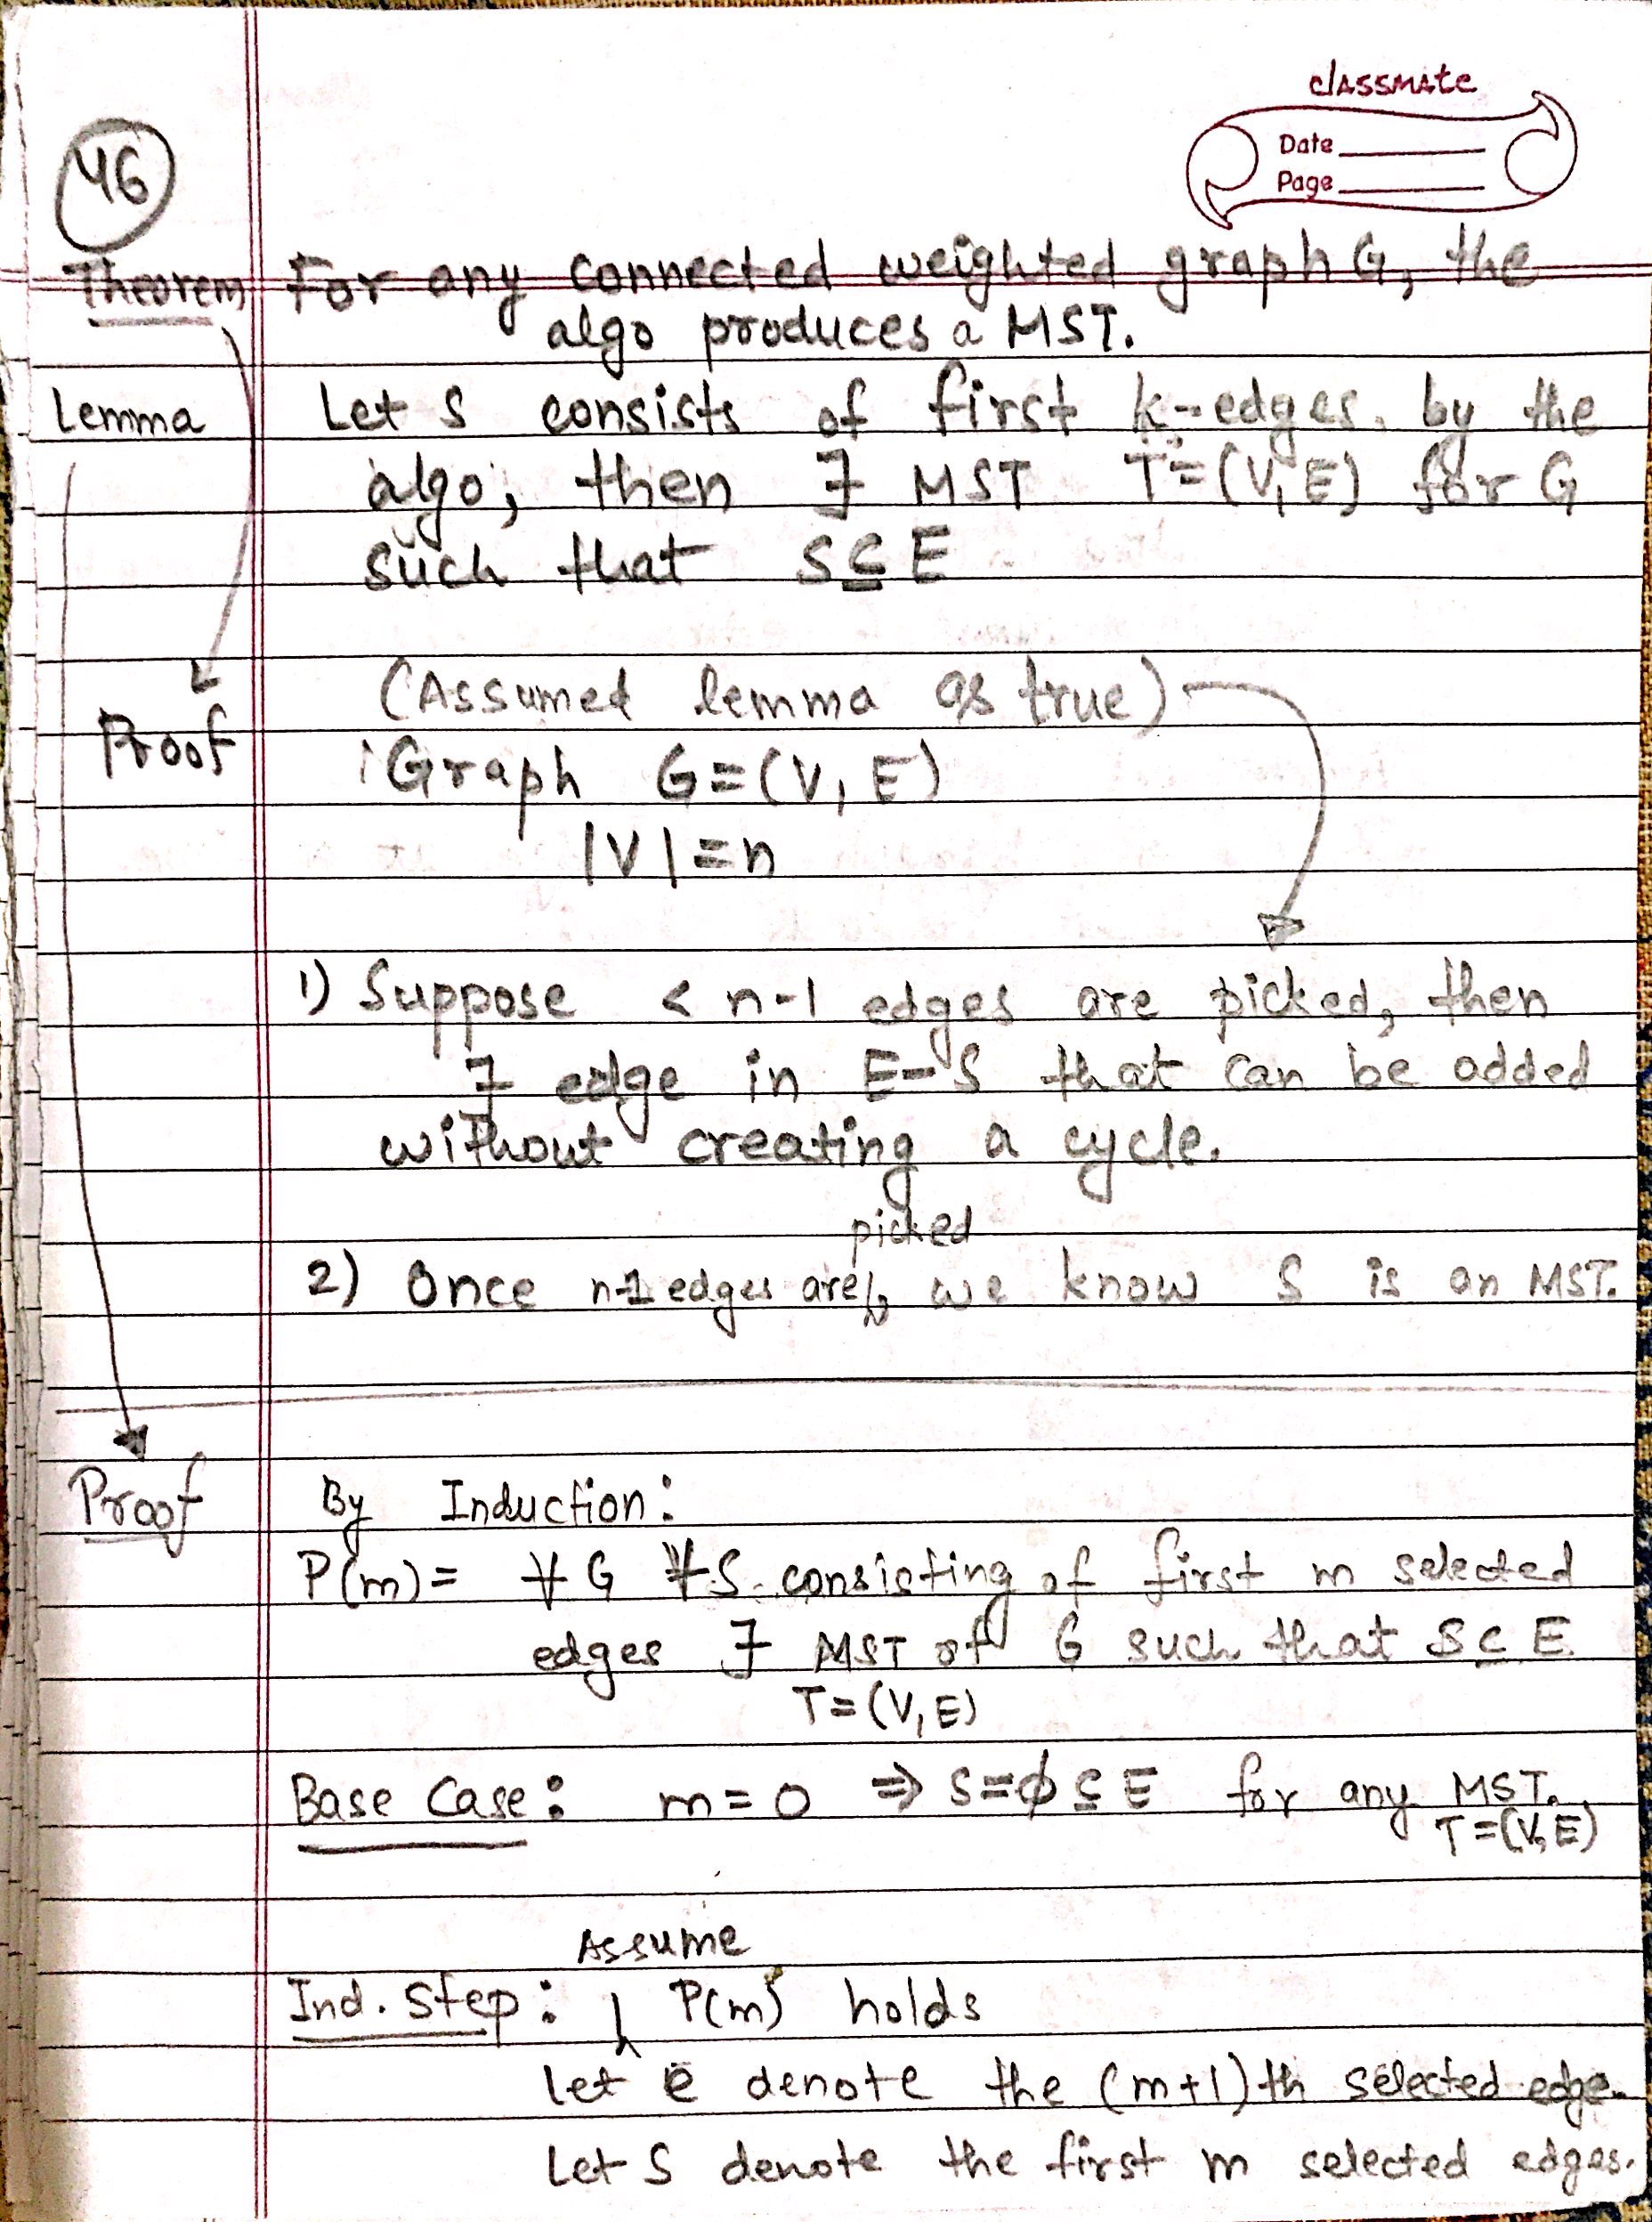 classmate
Date
Page
46
Theorem For any connected weighted graph G, the
algo produces a MST.
Lemma Let S consists of first k-edges by the
algo, then ∃ MST T=(V,E) for G
such that S⊆E
(Assumed lemma as true)
Proof Graph G=(V,E)
|V|=n
1) Suppose < n-1 edges are picked, then
∃ edge in E-S that can be added
without creating a cycle.
picked
2) Once n-1 edges are, we know S is an MST.
Proof By Induction:
P(m)= ∀G ∀S consisting of first m selected
edges ∃ MST of G such that S⊆E.
T=(V,E)
Base Case: m=0 ⇒ S=ϕ⊆E for any MST.
T=(V,E)
Assume
Ind. Step: P(m) holds
Let e denote the (m+1)th selected edge.
Let S denote the first m selected edges.